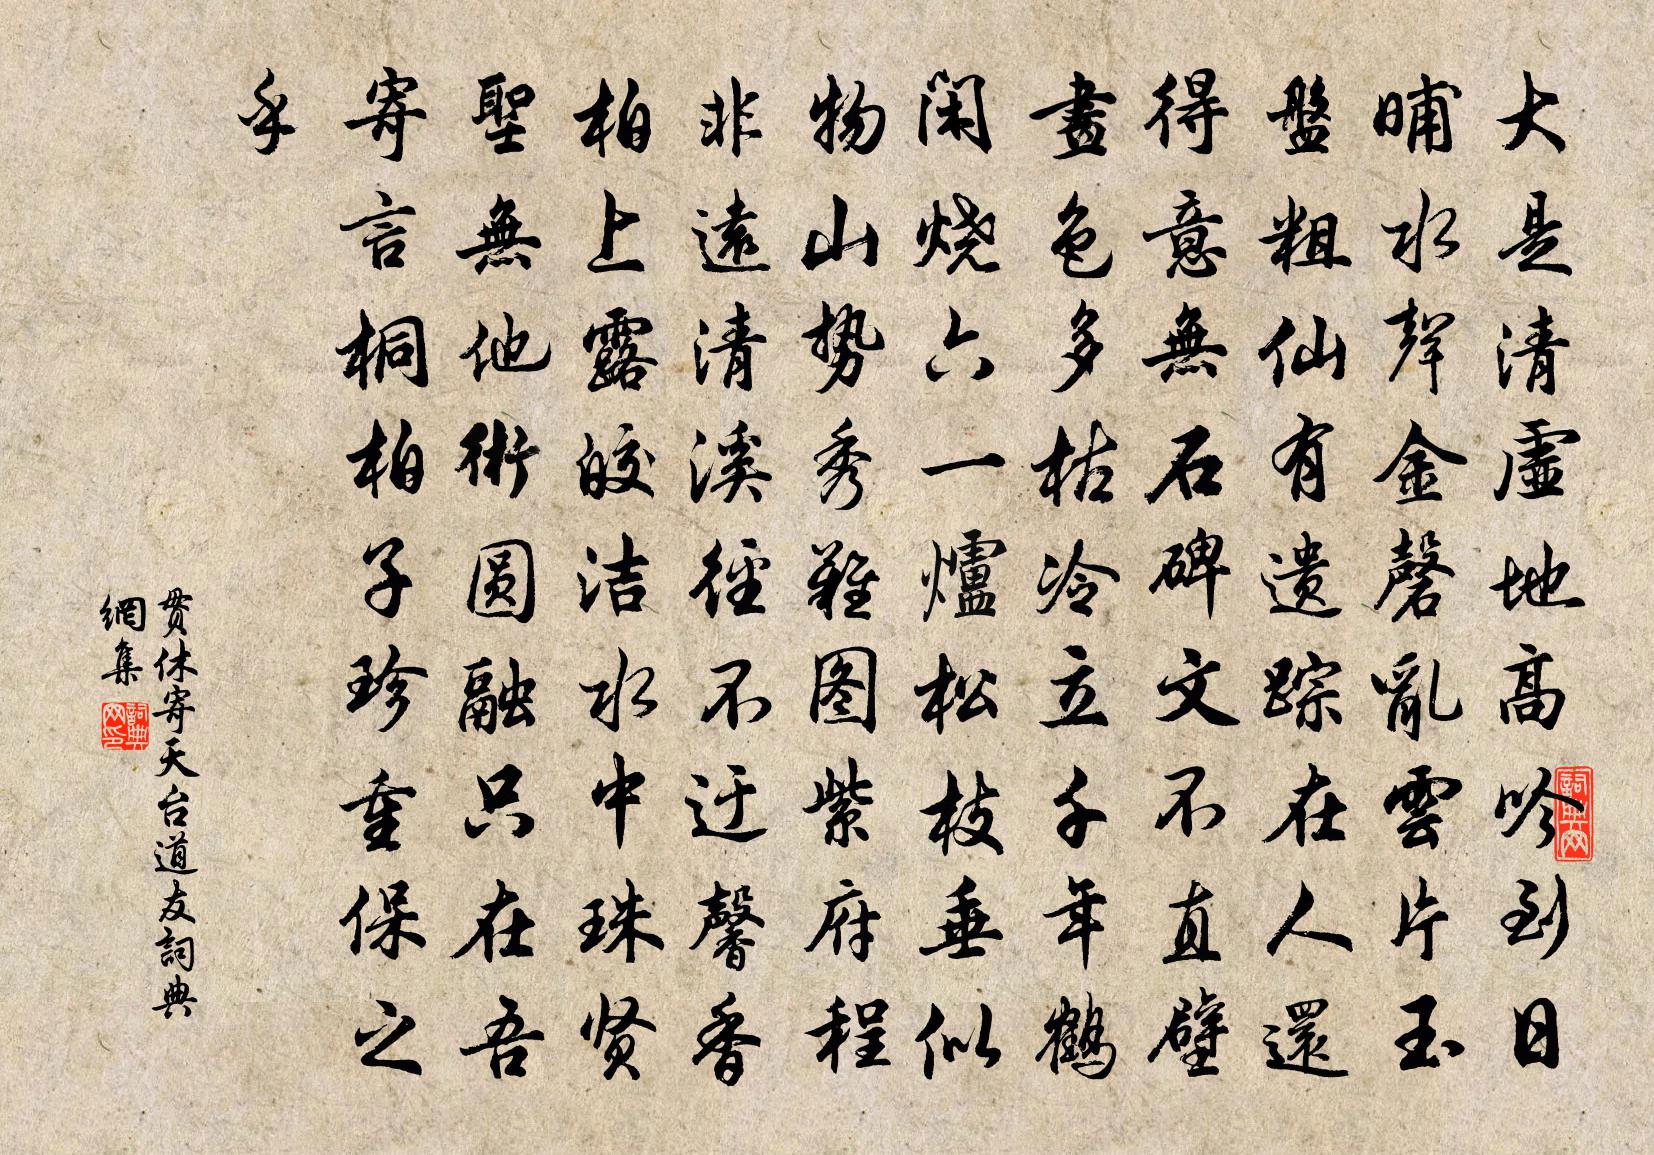 大是清虛地高吟到日
晡水聲金磬亂雲片玉
盤粗仙有遗踪在人還
得意無石碑文不直壁
畫色多枯冷立千年鶴
閑烧六一爐松枝垂似
物山势秀難图紫府程
非遠清溪徑不迂馨香
柏上露皎洁水中珠贤
聖無他術圆融只在吾
寄言桐柏子珍重保之
乎
貫休寄天台道友詞典
網集
詞典网
詞典网印